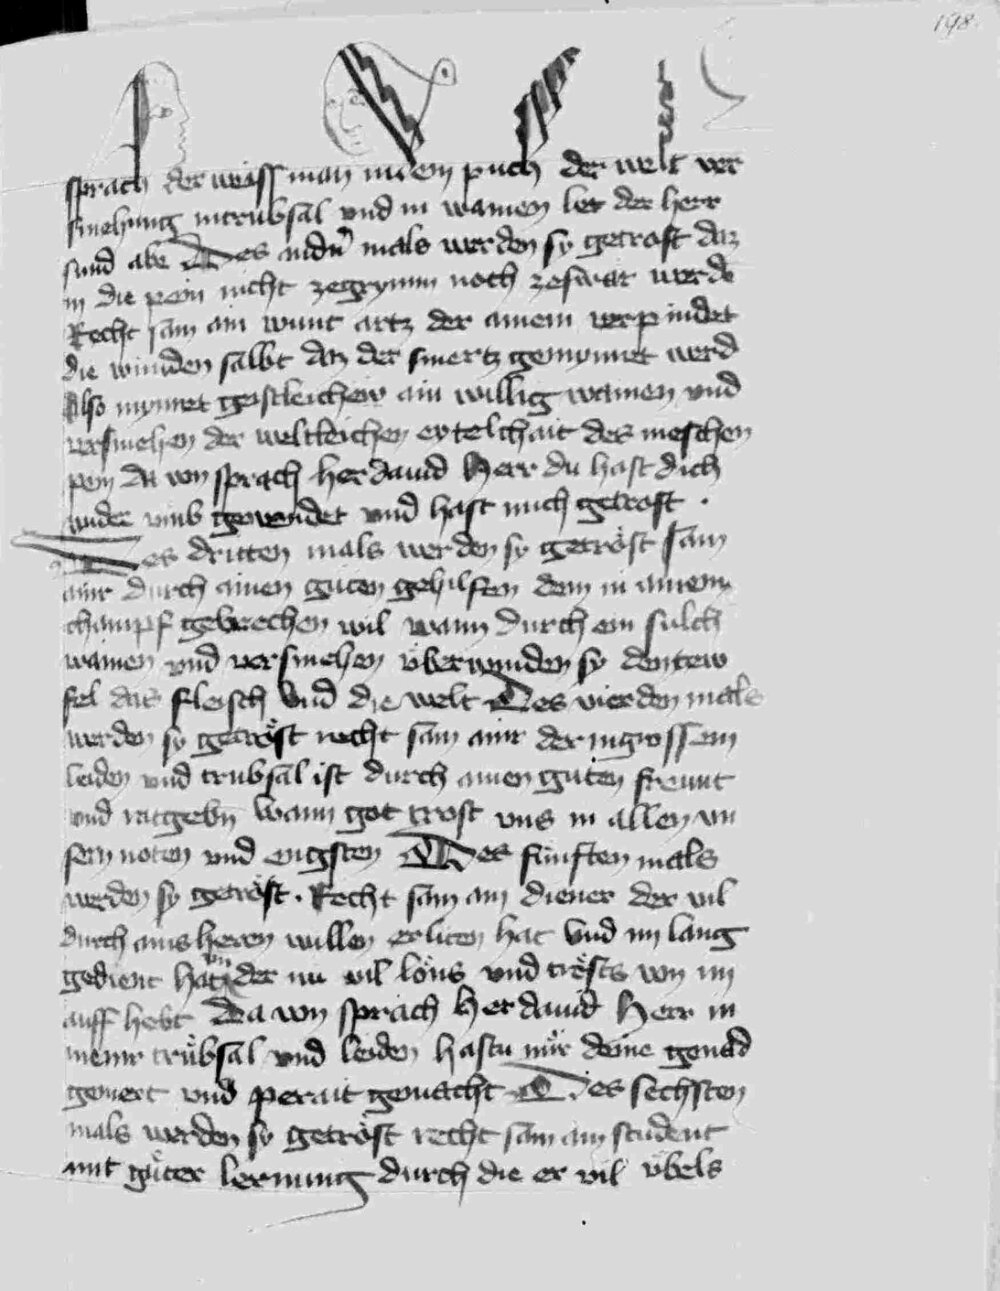 198
sprach der weiss man in dem puch der welt ver
smehung in trubsal vnd in wainen let der herr
sund abe Des andern mals werden sy getrost daz
in die pein nicht ze grymm noch ze swar werde
Recht sam ain wunt artz der ainem verpindet
die wunden salbt daz der smertz gemynnert werd
Also mynnert geistleichew ain willig wainen vnd
versmehen der weltleichen eytelchait des meschen
pein Da von sprach her dauid Herr du hast dich
wider vmb gewendet vnd hast mich getrost .
Des dritten mals werden sy getröst sam
ainr durch ainen guten gehilffen dem in ainem
champf gebrechen wil wann durch ein sulch
wainen vnd versmehen überwinden sy den tew
fel das fleisch vnd die welt Des vierden mals
werden sy getröst recht sam ainr der in grossem
leiden vnd trubsal ist durch ainen guten freunt
vnd ratgebn wann got trost vns in allen vn
sern noten vnd engsten Des fünften mals
werden sy getröst . Recht sam ain diener der vil
durch ains herren willen erliten hat vnd im lang
gedient hat der nu vil löns vnd trösts von im
auff hebt Da von sprach her dauid Herr in
meinr trübsal vnd leiden hastu mir deine genad
gemert vnd perait gemacht Des sechsten
mals werden sy getröst recht sam ain student
mit güter lernung durch die er vil übels